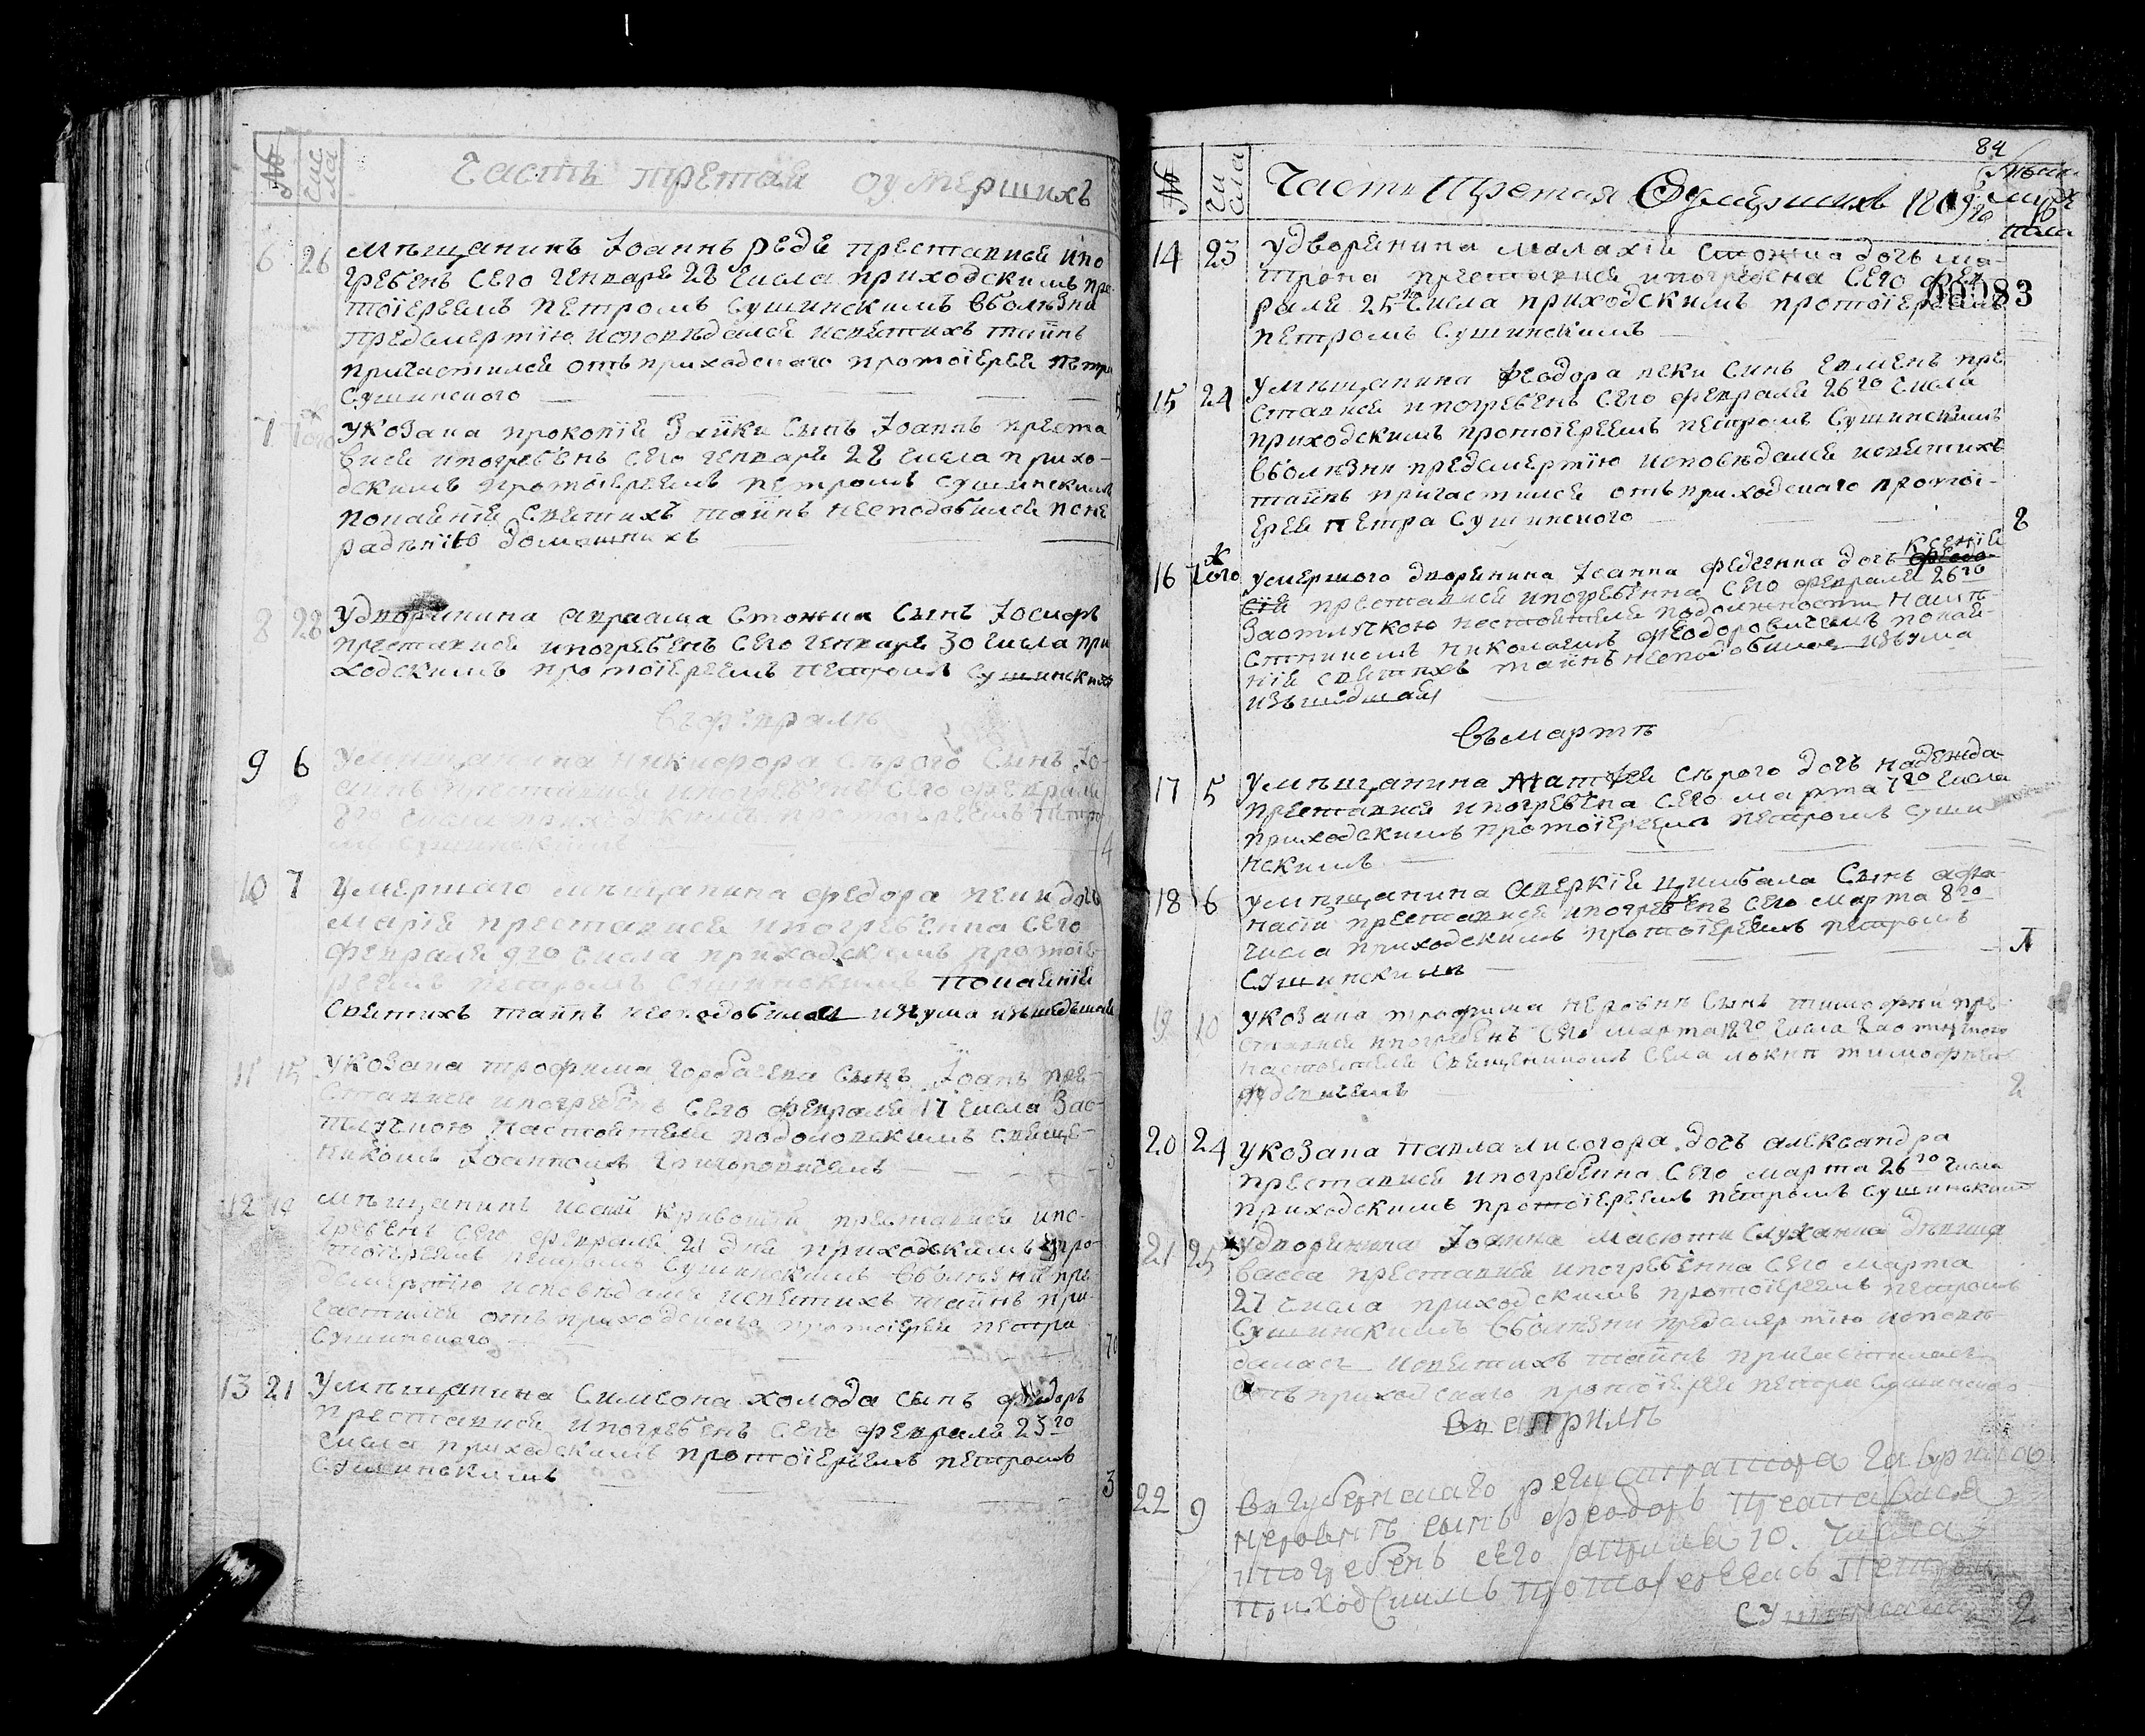 № Чис ла Часть третая оумершихъ
6 26 Мѣщанинъ Іоаннъ редя преставися ипо
гребенъ Сего генваря 28 числа приходскимъ про
тоіереемъ петромъ Сушинскимъ вболѣзни
предсмертію исповѣдался исвятихъ таинъ
причастился отъ приходского протоіерея петра
Сушинского
7 Того Укозака прокопія Заики Сынъ Іоаннъ преста
вися ипогребенъ Сего генваря 28 числа прихо-
дскимъ протоіереемъ петромъ Сушинскимъ
покаянія Святихъ таинъ неподобился поне
радѣнію домашнихъ
8 28 Удворянина Авраама Стожка Сынъ Іосифъ
преставися ипогребенъ Сего генваря 30 числа при
ходскимъ протоіереемъ петромъ Сушинскимъ
Въ февралѣ
9 6 Умѣщанина никифора Сѣрого Сынъ Іо-
аннъ преставися ипогребенъ Сего февраля
8го числа приходскимъ протоіереемъ петро
мъ Сушинскимъ 4
10 7 Умершаго мѣщанина федора пеки дочь
марія преставися ипогребенна Сего
февраля 9го числа приходскимъ протоіе-
реемъ петромъ Сушинскимъ покаянія
Святихъ таинъ неподобилася изъума изшедшая
11 15 Укозака трофима горбачева Сынъ Іоанъ пре-
Ставися ипогребенъ Сего февраля 17 числа Зао-
тлучкою настоятеля подоловскимъ Свяще-
никомъ Іоанномъ Григоровичемъ
12 19 Мѣщанинъ исаій кривошія преставися ипо-
гребенъ Сего февраля 21 дня приходскимъ про-
тоіереемъ петромъ Сушинскимъ вболѣзни пре
дсмертію исповѣдался исвятихъ таинъ при-
частился отъ приходского протоіерея петра
Сушинского 70
13 21 Умѣщанина Симеона холода сынъ федоръ
преставися ипогребенъ Сего февраля 23го
числа приходскимъ протоіереемъ петромъ
Сушинскимъ 3
84
№ Чи сла Часть третая Оумершихъ 1809го
00083
14 23 Удворянина Малахія Стожка дочь ма-
трона преставися ипогребена Сего фев
раля 25го числа приходскимъ протоіереемъ
петромъ Сушинскимъ
15 24 Умѣщанина Феодора пеки Синъ Семенъ пре
Ставися ипогребенъ Сего февраля 26го числа
приходскимъ протоіереемъ петромъ Сушинскимъ
вболѣзни предсмертію исповѣдался исвятихъ
таинъ причастился отъ приходского протої-
ерея петра Сушинского 8
Ксенія
16 Того Умершого дворянина Іоанна федченка дочь феодо-
сія преставися ипогребенна Сего февраля 26го
Заотлучкою настоятеля подолжности намѣ-
стникомъ николаемъ Феодоровичемъ покая-
нія святихъ таинъ неподобилася изъума
изъшедшая
Въмартѣ
17 5 Умѣщанина Матѳея Сѣрого дочь надежда
преставися ипогребена Сего марта 7го числа
приходскимъ протоіереемъ петромъ Суши
нскимъ
18 6 Умѣщанина Аверкія Цимбала Сынъ афа-
насій преставися ипогребенъ Сего марта 8го
числа приходскимъ протоіереемъ петромъ
Сушинскимъ
19 10 Укозака трофима неровни Сынъ тимофѣй пре-
ставися ипогребенъ Сего марта 12го числа Заотлучкою
настоятеля Священикомъ Села локни тимофѣемъ
2
20 24 Укозака павла лисогора дочь александра
преставися ипогребенна Сего марта 26го числа
приходскимъ протоіереемъ петромъ Сушинскимъ
21 25 Удворянина Іоанна масюти Служанка дѣвица
васса преставися ипогребенна Сего марта
27 числа приходскимъ протоіереемъ петромъ
Сушинскимъ вболѣзни предсмертію исповѣ-
далась исвятихъ таинъ причастилась
Отъ приходского протоіерея петра Сушинского
Въ априлѣ
22 9 Вгубернскаго регистратора гавриила
неровнѣ сынъ феодоръ преставися
ипогребенъ сего априля 10. числа
приходскимъ протоіереемъ петромъ
Сушинскимъ 2